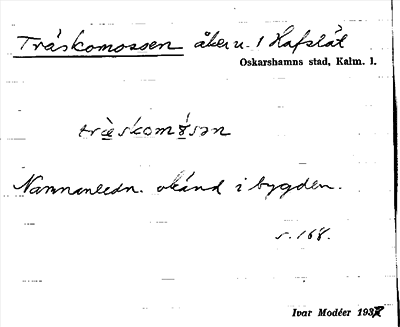 Träskomossen åker u. 1 Hafslät
Oskarshamns stad, Kalm. l.
träskomɷsən
Namnanledn. okänd i bygden.
s. 168.
Ivar Modéer 1937